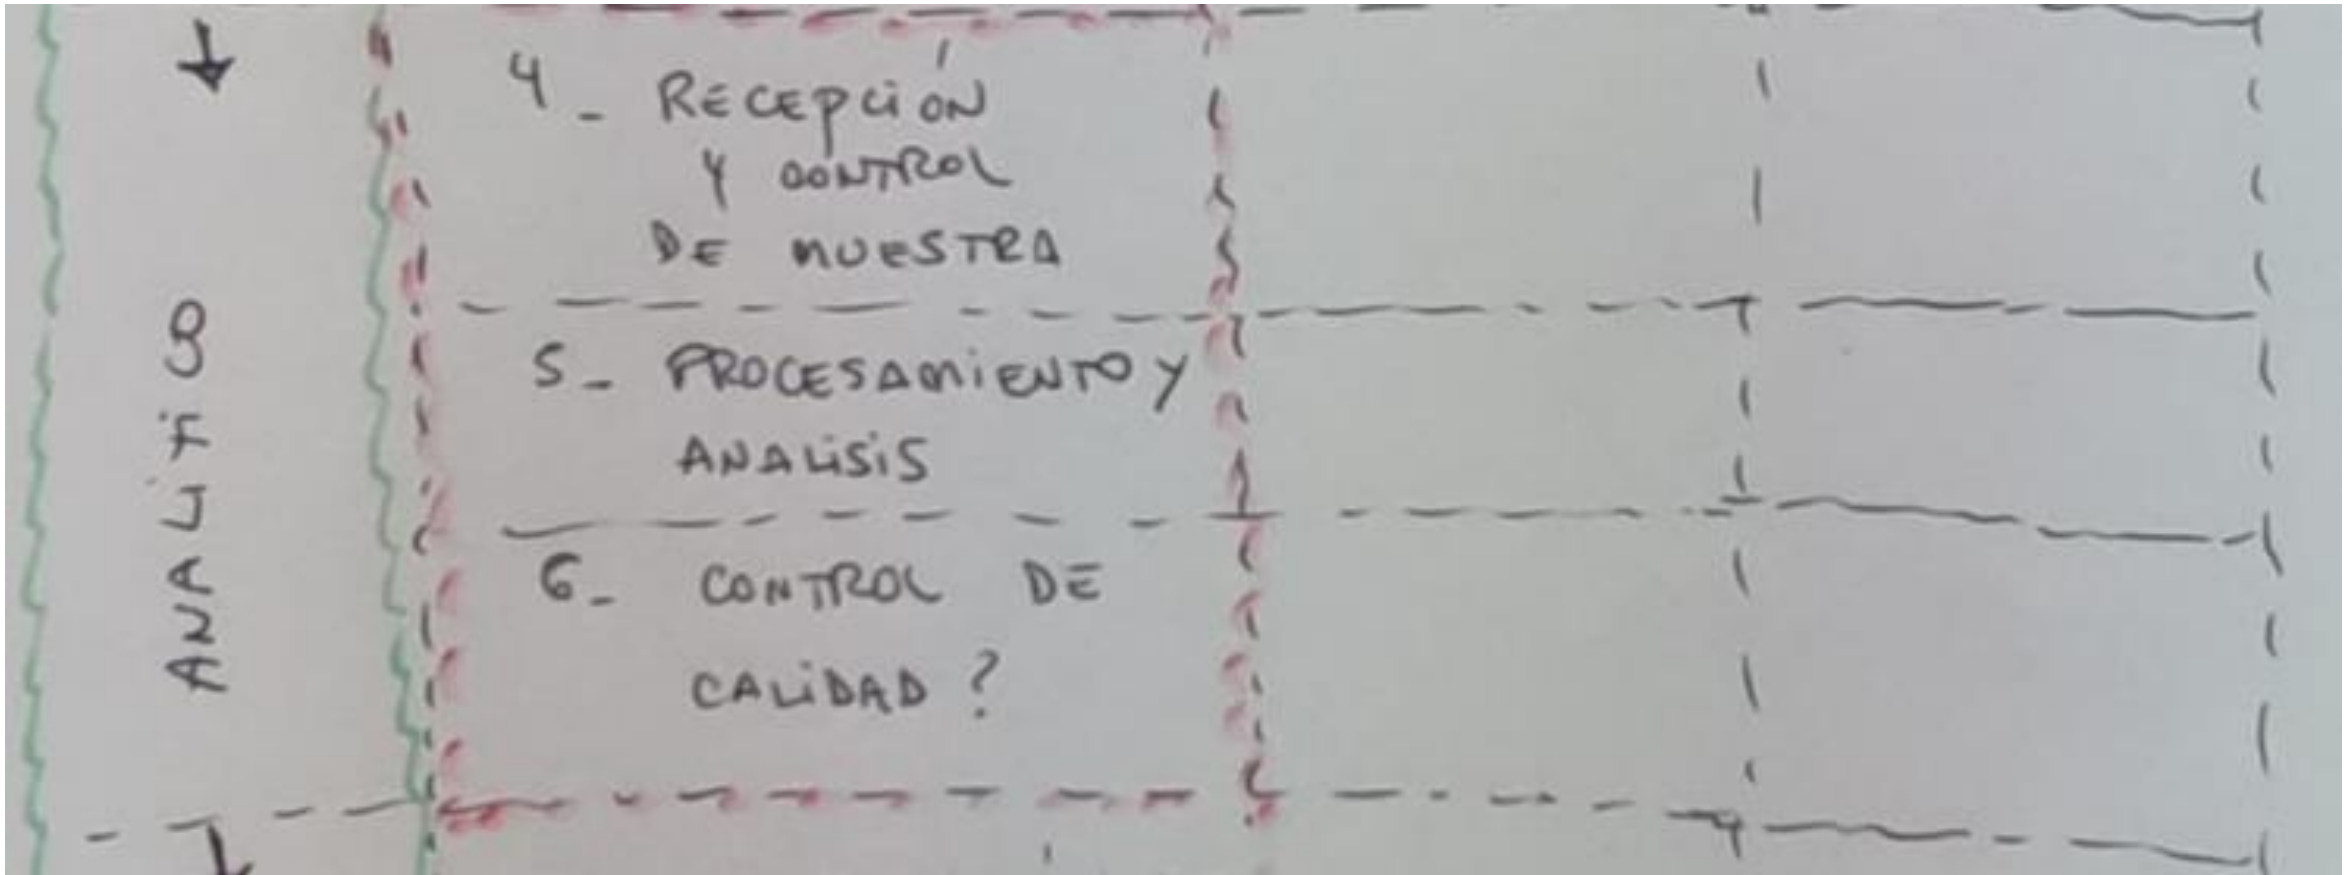 ANALITICO
4- RECEPCIÓN
Y CONTROL
DE MUESTRA
5- PROCESAMIENTO Y
ANALISIS
6- CONTROL DE
CALIDAD ?